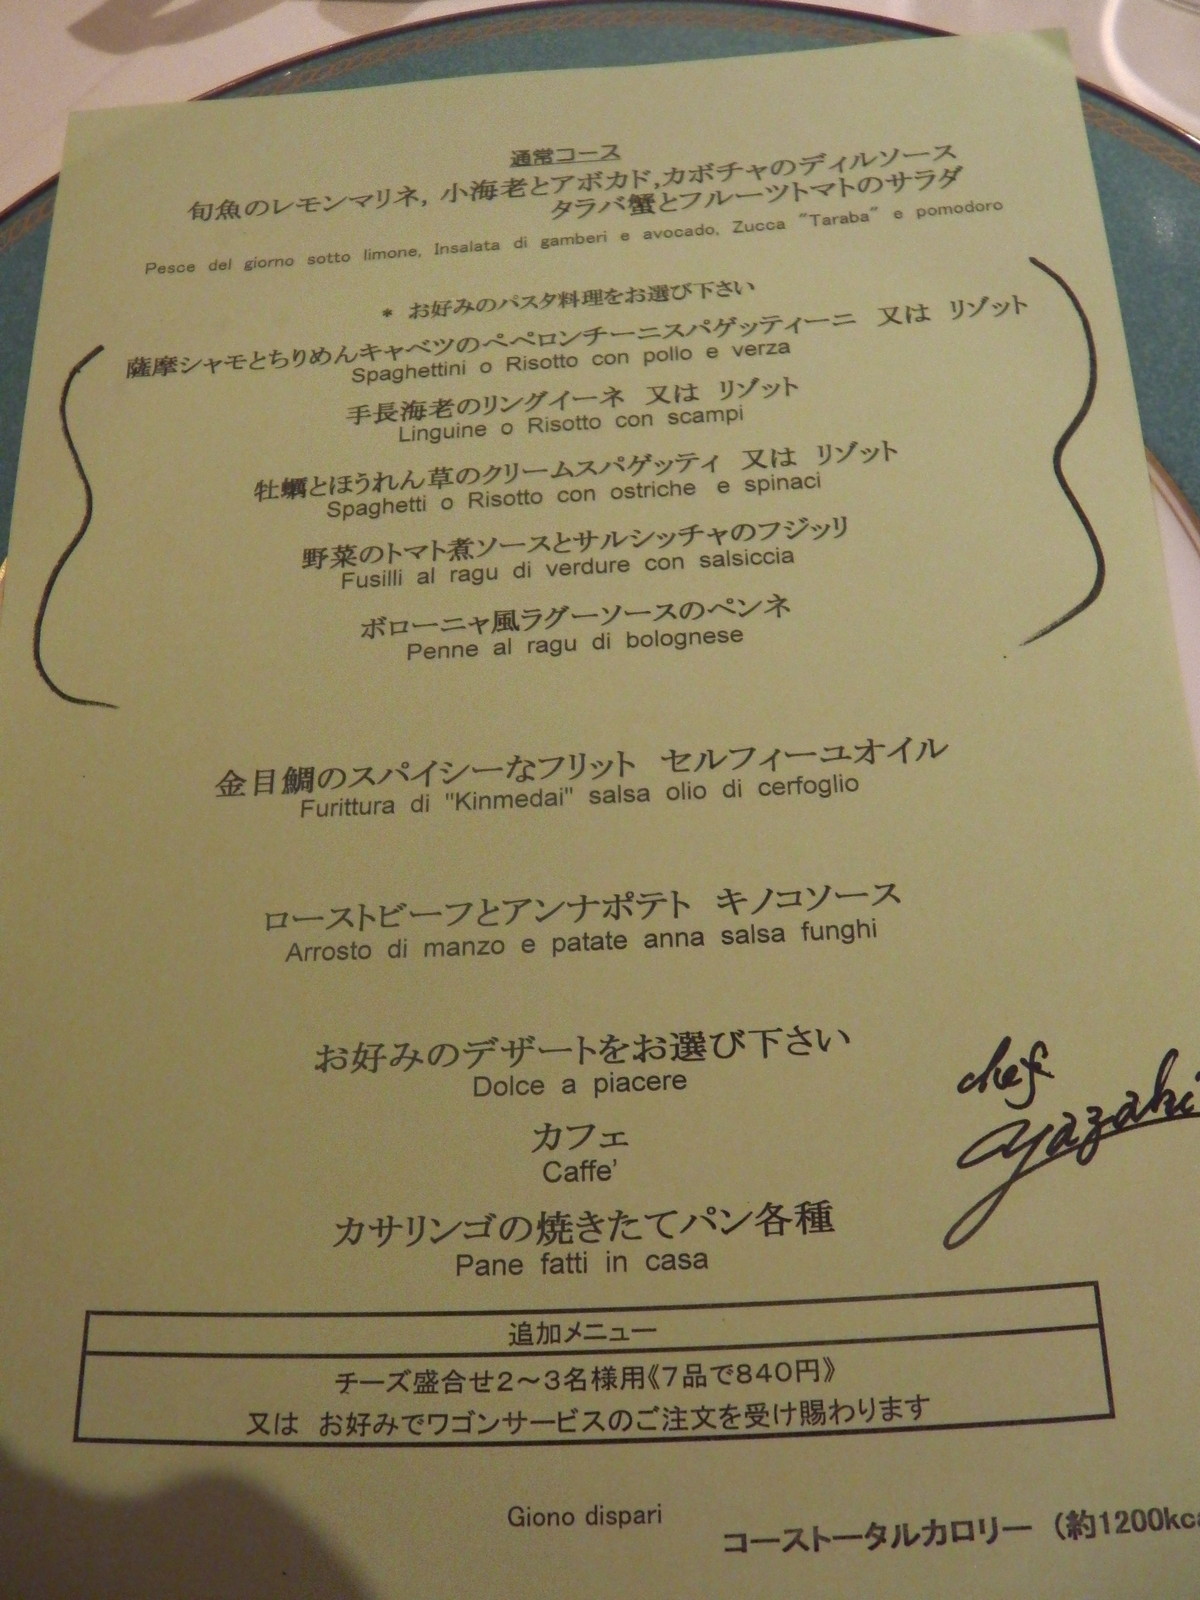 通常コース
旬魚のレモンマリネ, 小海老とアボカド,カボチャのディルソース
タラバ蟹とフルーツトマトのサラダ
Pesce del giorno sotto limone, Insalata di gamberi e avocado, Zucca "Taraba" e pomodoro
* お好みのパスタ料理をお選び下さい
薩摩シャモとちりめんキャベツのペペロンチーニスパゲッティーニ 又は リゾット
Spaghettini o Risotto con pollo e verza
手長海老のリングイーネ 又は リゾット
Linguine o Risotto con scampi
牡蠣とほうれん草のクリームスパゲッティ 又は リゾット
Spaghetti o Risotto con ostriche e spinaci
野菜のトマト煮ソースとサルシッチャのフジッリ
Fusilli al ragu di verdure con salsiccia
ボローニャ風ラグーソースのペンネ
Penne al ragu di bolognese
金目鯛のスパイシーなフリット セルフィーユオイル
Furittura di "Kinmedai" salsa olio di cerfoglio
ローストビーフとアンナポテト キノコソース
Arrosto di manzo e patate anna salsa funghi
お好みのデザートをお選び下さい
Dolce a piacere
カフェ
Caffe'
カサリンゴの焼きたてパン各種
Pane fatti in casa
chef
yazaki
追加メニュー
チーズ盛合せ2～3名様用《7品で840円》
又は お好みでワゴンサービスのご注文を受け賜わります
Giono dispari
コーストータルカロリー (約1200kca